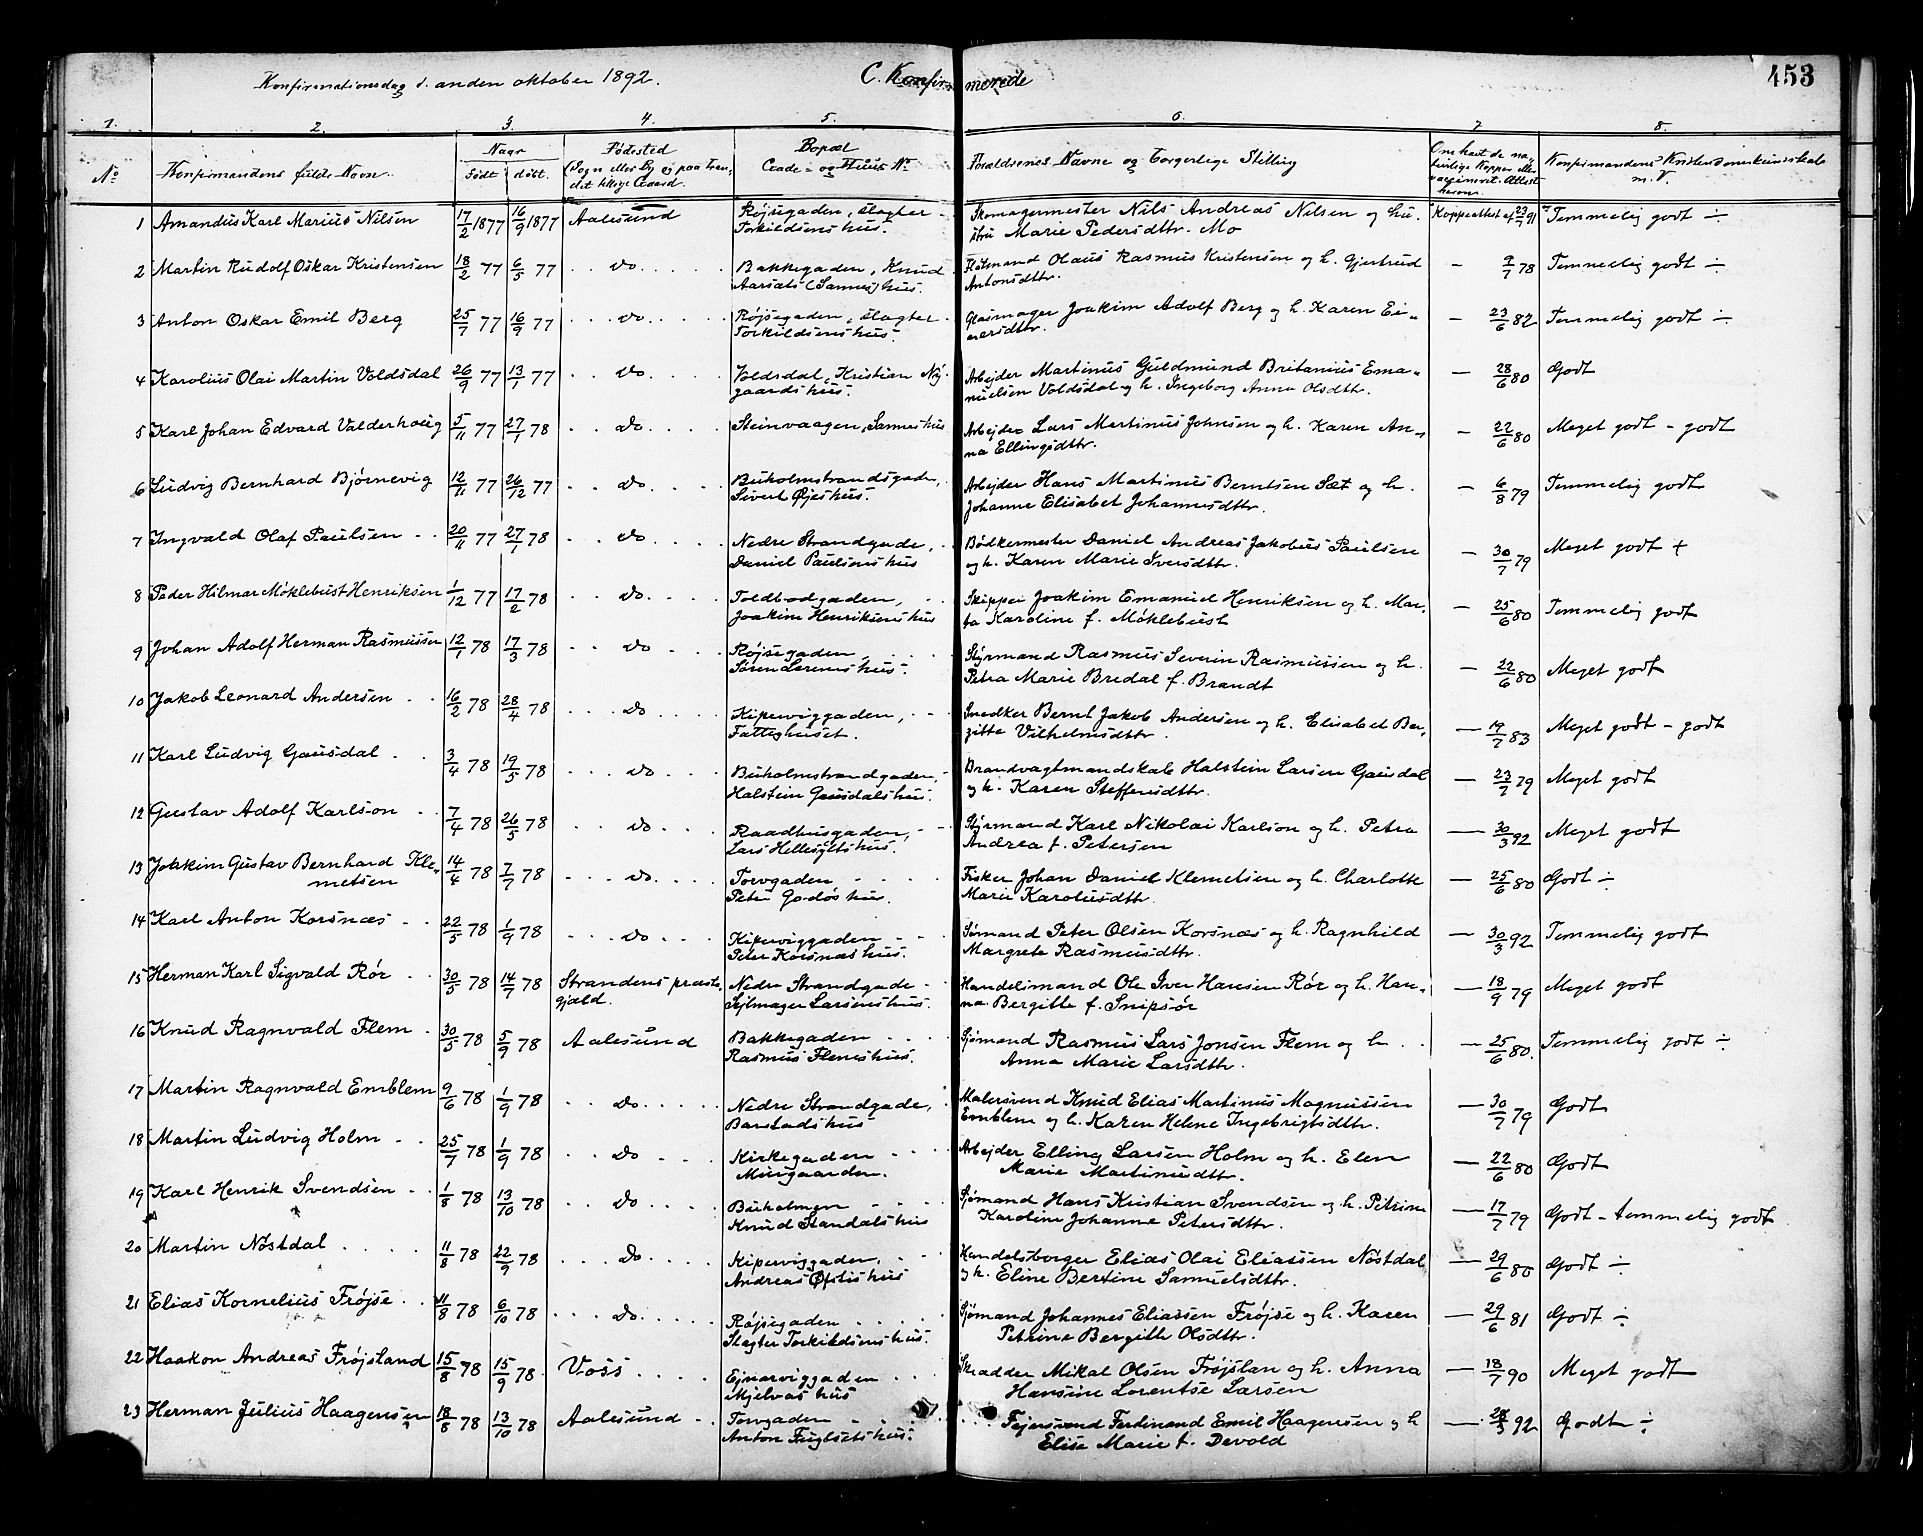 Konfirmationsdag d. anden oktober 1892. C. Konfirmerede 453
1. 2. 3. 4. 5. 6. 7 8.
No Konfirmandens fulde Navn Naar Født døbt. Fødested (Sogn eller By og paa Landet tillige Gaard) Bopæl Gade- og Huus No Forældrenes Navne og borgerlige Stilling Om havt de naturlige Kopper eller vaccineret. Attest herom. Konfirmandens Kristendomskundskab m. V.
1 Amandus Karl Marius Nilsen 17/2 1877 16/9 1877 Aalesund Røjsegaden, slagter Skomagermester Nils Andreas Nilsen og hu- Koppeattest af 23/7 91 Temmelig godt ÷
Torkildsens hus. stru Marie Pedersdttr. Mo
2 Martin Rudolf Oskar Kristensen 18/2 77 6/5 77 do Bakkegaden, Knud Flötmand Olaus Rasmus Kristensen og h. Gjertrud — 9/7 78 Temmelig godt ÷
Aarsæts (Sannes) hus. Antonsdttr.
3 Anton Oskar Emil Berg 25/7 77 16/9 77 do Røjsegaden, slagter Glasmager Joakim Adolf Berg og h. Karen Ei- — 23/6 82 Temmelig godt ÷
Torkildsens hus. nersdttr.
4 Karolius Olai Martin Voldsdal 26/9 77 13/1 77 do Voldsdal, Kristian Ny- Arbejder Martinus Guldmund Britanius Ema- — 28/6 80 Godt
gaards hus. nuelsen Voldsdal og h. Ingeborg Anna Olsdttr.
5 Karl Johan Edvard Valderhoug 5/11 77 27/1 78 do Steinvaagen, Sannes hus Arbejder Lars Martinus Johnsen og h. Karen An- — 22/6 80 Meget godt - godt
na Ellingsdttr.
6 Ludvig Bernhard Bjørnevig 12/11 77 26/12 77 do Buholmstrandsgade, Arbejder Hans Martinus Berntsen Sæt og h. — 6/8 79 Temmelig godt
Sivert Øjes hus. Johanne Elisabet Johannesdttr.
7 Ingvald Olaf Paulsen 20/11 77 27/1 78 do Nedre Strandgade, Bødkermester Daniel Andreas Jakobus Paulsen — 30/7 79 Meget godt +
Daniel Paulsens hus og h. Karen Marie Iversdttr.
8 Peder Hilmar Möklebust Henriksen 1/12 77 17/2 78 do Toldbodgaden, Skipper Joakim Emanuel Henriksen og h. Mar- — 25/6 80 Temmelig godt
Joakim Henriksens hus ta Karoline f. Möklebust
9 Johan Adolf Herman Rasmussen 12/1 78 17/3 78 do Røjsegaden, Styrmand Rasmus Severin Rasmussen og h. — 22/6 80 Meget godt
Søren Lerems hus. Petra Marie Bredal f. Brandt
10 Jakob Leonard Andersen 16/2 78 28/4 78 do Kiperviggaden, Snedker Bernt Jakob Andersen og h. Elisabet Ber- — 19/7 83 Meget godt - godt
Fattighuset. gitte Vilhelmsdttr.
11 Karl Ludvig Gausdal 3/4 78 19/5 78 do Buholmstrandgaden, Brandvagtmandskab Halstein Larsen Gausdal — 23/7 79 Meget godt
Halstein Gausdals hus. og h. Karen Steffensdttr.
12 Gustav Adolf Karlson 7/4 78 26/5 78 do Raadhusgaden, Styrmand Karl Nikolai Karlson og h. Petra — 30/3 92 Meget godt
Lars Hellesylts hus. Andrea f. Petersen
13 Joakim Gustav Bernhard Kle- 14/4 78 7/7 78 do Torvgaden Fisker Johan Daniel Klemetsen og h. Charlotte — 25/6 80 Godt ÷
metsen Peter Godøs hus. Marie Karolusdttr.
14 Karl Anton Korsnæs 22/5 78 1/9 78 do Kiperviggaden Sømand Peter Olsen Korsnæs og h. Ragnhild — 30/3 92 Temmelig godt
Peter Korsnæs hus. Margrete Rasmusdttr.
15 Herman Karl Sigvald Rør 30/5 78 14/7 78 Strandens præste- Nedre Strandgade Handelsmand Ole Iver Hansen Rør og h. Han- — 18/9 79 Meget godt
gjæld. Sejlmager Larsens hus. na Bergitte f. Snipsør
16 Knud Ragnvald Flem 30/5 78 5/9 78 Aalesund Bakkegaden Sjømand Rasmus Lars Jonsen Flem og h. — 25/6 80. Temmelig godt ÷
Rasmus Flems hus. Anna Marie Larsdttr.
17 Martin Ragnvald Emblem 9/6 78 1/9 78 do Nedre Strandgade, Malersvend Knud Elias Martinus Magnussen — 30/7 79 Godt
Barstads hus Emblem og h. Karen Helene Ingebrigtsdttr.
18 Martin Ludvig Holm 25/7 78 1/9 78 do Kirkegaden Arbejder Elling Larsen Holm og h. Elen — 22/6 80 Godt
Murgaarden. Marie Martinusdttr.
19 Karl Henrik Svendsen 1/8 78 13/10 78 do Buholmen Sjømand Hans Kristian Svendsen og h. Petrine — 17/7 79 Godt - temmelig godt
Knud Standals hus Karoline Johanne Petersdttr.
20 Martin Nöstdal 11/8 78 22/9 78 do Kiperviggaden, Handelsborger Elias Olai Eliassen Nöstdal — 29/6 80 Godt ÷
Andreas Øfstis hus og h. Eline Bertine Samuelsdttr.
21 Elias Kornelius Frøjse 11/8 78 6/10 78 do Røjsegaden Sjømand Johannes Eliassen Frøjse og h. Karen — 29/6 81 Godt ÷
Slagter Torkildsens hus. Petrine Bergitte Olsdttr.
22 Haakon Andreas Frøjsland 15/8 78 15/9 78 Voss Ejnarviggaden Skrædder Mikal Olsen Frøjslan og h. Anna — 18/7 90 Meget godt
Mjelvas hus Hansine Lorentse Larsen
23 Herman Julius Haagensen 18/8 78 13/10 78 Aalesund Torvgaden Fejersvend Ferdinand Emil Haagensen og h — 92 Godt ÷
Anton Fuglsets hus. Elise Marie f. Devold